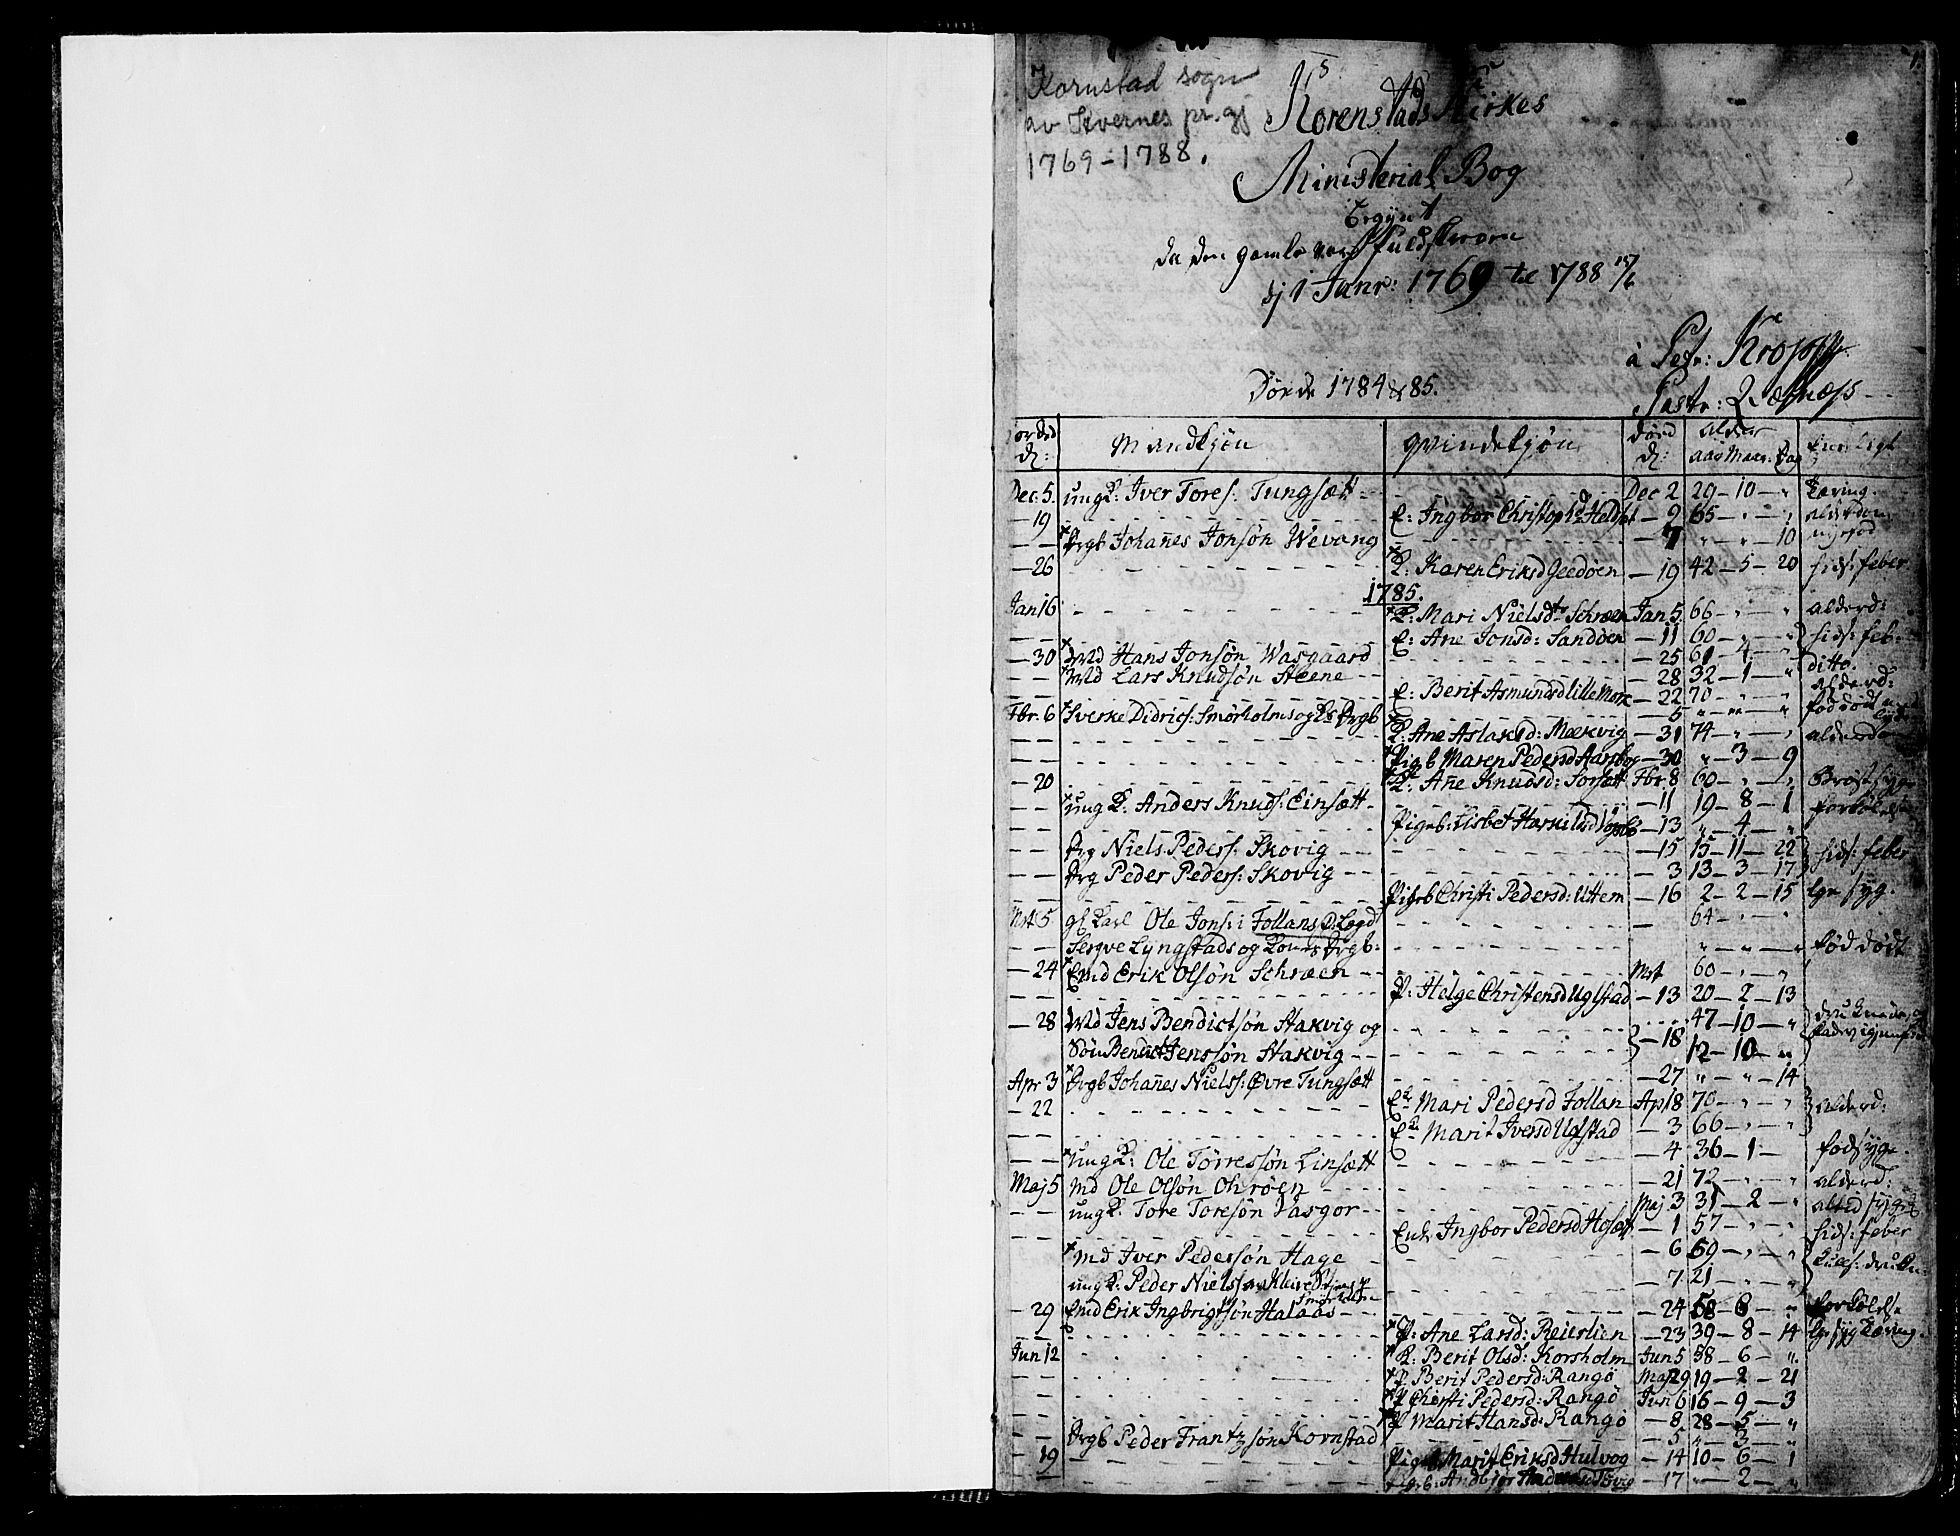 Kornstad sogn
av Kvernes pr.gj
1769-1788.
Korenstads Kirkes
Ministerial Bog
Begynt
da den gamle var fuldskreven
dj 1 Janr: 1769 til 1788 15/6
à Petr: Kropp
Past: Qværnæs
Døde 1784 & 85.
Mandkjøn Qvindekjøn død d: alder
aar Maan: Dag
Dec 5. ung K: Iver Tores: Tungsætt Dec 2 29 - 10 - "
- 19 E: Ingbor Christophd Heldset - 9 65 - " - " alderdom
- - Drgb Johanes Jonsøn Wevang - 7 " - " - 10
- 26 K: Karen Eriksd Geedøen - 19 42 - 5 - 20 hids: feber
1785.
Jan 16 K: Mari Nielsdtr Schræen Jan 5 66 - " - " alderd:
- - E: Ane Jonsd: Sandøen - 11 60 - " - " hids: feb.
- 30 Md Hans Jonsøn Wasgaard - 25 61 - 4 - " ditto.
- - Md Lars Knudsøn Steene - 28 32 - 1 - "
- - E: Berit Asmundsd Lille Mork - 22 70 - " - " alderd:
Fbr. 6 Sverke Didrics: Smørholms og Ks Drgb - 5 " - " - "
- - K: Ane Aslaksd: Mækvig - 31 74 - " - " alderdom
- - Pigb Maren Pedersd - 30 " - 3 - 9
- 20 K: Ane Knudsd: Sorsætt Fbr. 8 60 - " - " Brøstsyge
- - ung K: Anders Knuds: Einsætt - 11 19 - 8 - 1 forkølelse
- - Pigeb: Lisbet - 13 " - 4 - "
- - Drg Niels Peders: Skovig - 15 15 - 11 - 22 hids: feber
- - Drg Peder Peders: Skovig - 3 13 - 3 - 17
- - Pigeb Christi Pedersd: Uttem - 16 2 - 2 - 15
Mrt 5 gl Karl Ole Jons: i Follans Legd - 64 - " - "
- - Sergve Lyngstads og Kones Drgb: " - " - " fød død
- 24 Emd Erik Olsøn Schræen Mrt 60 - " - "
- - P: Helge Christensd Uglstad - 13 20 - 2 - 13
- 28 Md Jens Bendictsøn Stakvig og - 18 47 - 10 - "
Søn Bendict Jenssøn Stakvig 12 - 10 - "
Apr 3 Drgb Johanes Niels: Øvre Tungsætt - 27 " - " - 14
- 22 Ek Mari Pedersd Follan Apl 8 70 - " - " alderd:
- - Ek Marit Iversd Uglstad - 3 66 - " - "
- - ung K: Ole Torressøn Linsætt - 4 36 - 1 -
Maj 5 Md Ole Olsøn Ohrøen - 21 72 - " - " alderd:
- - ung K: Tore Toresøn Vasgor Maj 3 31 - 2 - " altid syg
- - Enk Ingbor Pedersd Hosætt - 1 57 - " - " hids: feber
- - Md Iver Pedersøn Hage - 6 59 - " - "
ung K: Peder Niels: - 7 21 - " - "
- 29 Emd Erik Ingbrigtsøn Halaas - 24 58 - 8 - " forkølelse
- - P: Ane Larsd: Reierlien - 23 39 - 8 - 14
Jun 12 K: Berit Olsd: Korsholm Jun 5 38 - 6 - "
- - P Berit Pedersd: Rangø Maj 29 19 - 2 - 21
- - P Christi Pedersd: Rangø Jun 6 16 - 9 - 3
- - P Marit Hansd: Rangø - 8 28 - 5 - "
- - Drgb Peder Frantzsøn Kornstad - 5 " - 3 - "
- 19 Pig Marit Eriksd Hulvog - 14 10 - 6 - 1
Pigb: - 17 " - 2 - "